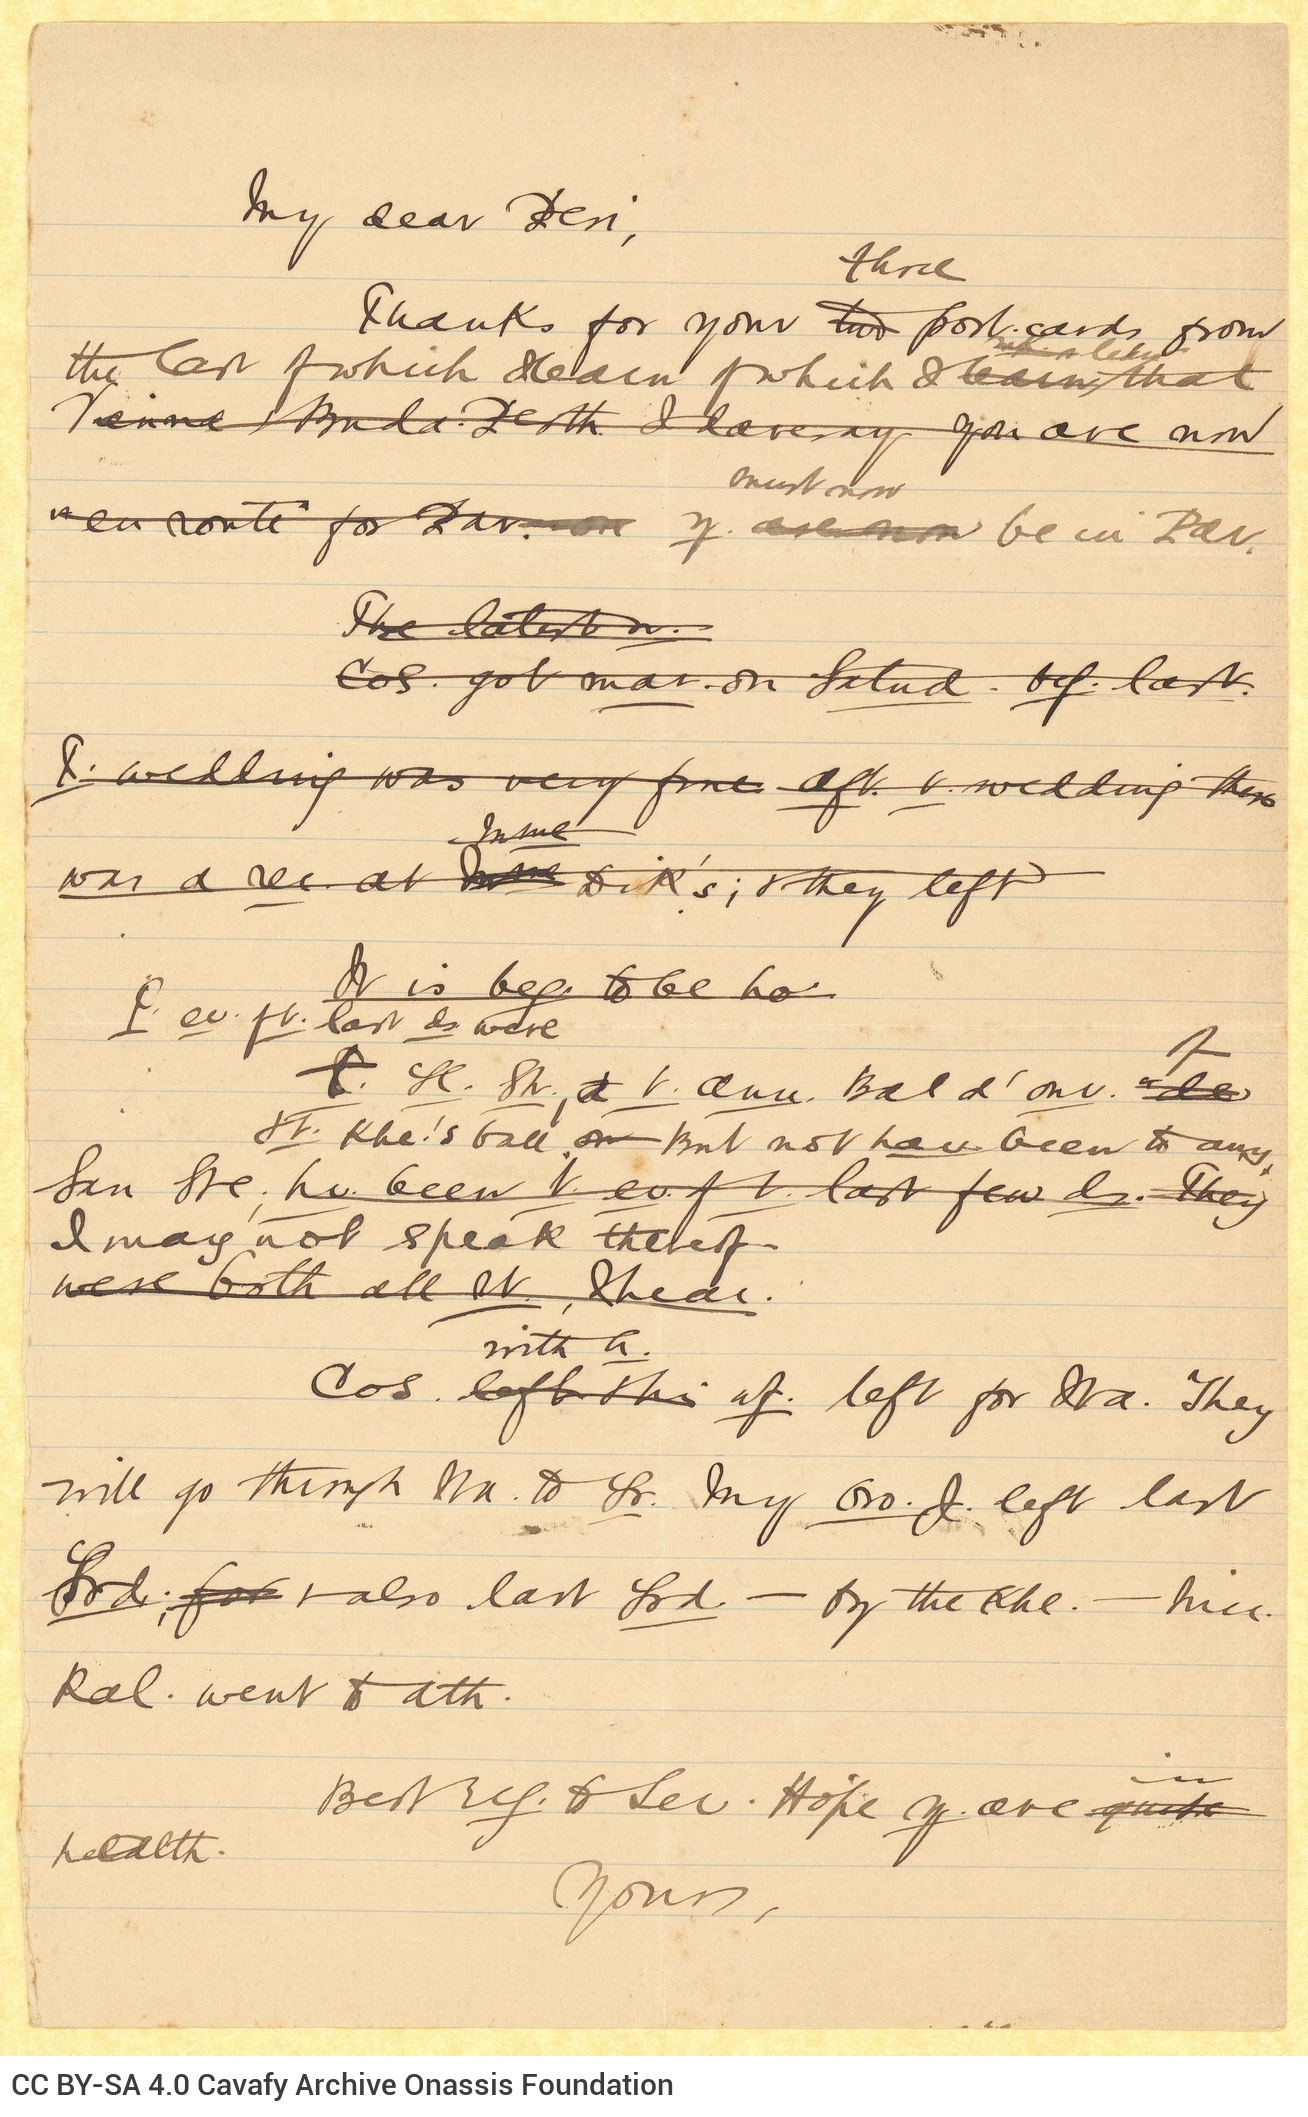 My dear Peri,
three
Thanks for your two post.cards from
the last of which I learn of which I learn, that
Vienna & Buda-Pesth I daresay you are now
must now
"en route" for Par. y. are now be in Par.
The latest n.
Cos. got mar. on Satud. bef. last.
T. wedding was very fine aft. t. wedding there
Mme
was a rec. at Mme Dik's; & they left
It is beg. to be ho
T. ev. ft. last ds. were
T. St. St., & t. ann. Bal d' onv. "de
of
St. Khe.'s ball, on But not hav. been to any,
San Ste, hv. been t. ev. of t. last few ds. They
I may not speak thereof
were both all rt., I hear.
with h.
Cos. left this wf. left for Ita. They
will go through Ita. to Fr. My bro. J. left last
Frd., for & also last Frd. — by the Khe. — Mic.
Ral. went to Ath.
in
Best reg. to Sev. Hope y. are quite
health.
Yours,
CC BY-SA 4.0 Cavafy Archive Onassis Foundation